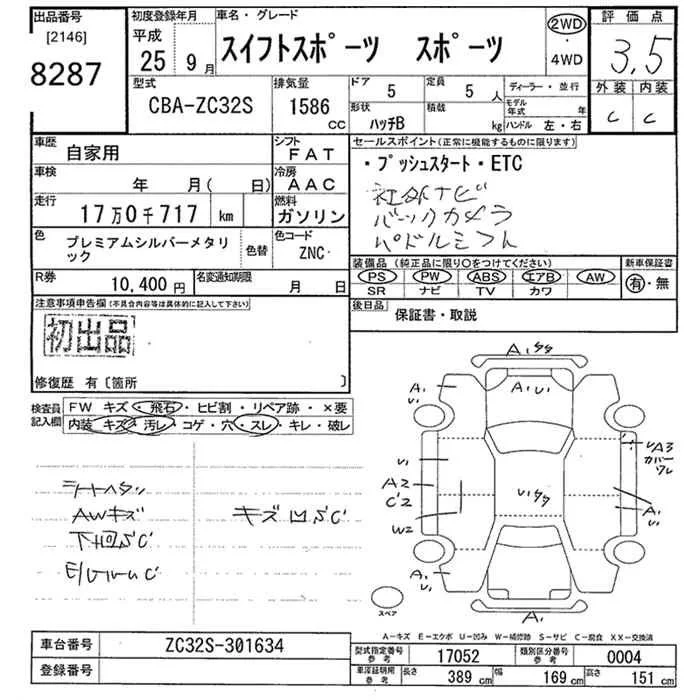 出品番号
[2146]
8287
初度登録年月
平成
25年 9月
車名・グレード
スイフトスポーツ スポーツ
2WD
・
4WD
評価点
3.5
外装 内装
C C
型式
CBA-ZC32S
排気量
1586
CC
ドア
5
定員
5人
形状
ハッチB
積載
kg
ディーラー・並行
モデル年式 年
ハンドル 左・右
車歴
自家用
シフト
FAT
車検
年 月( 日)
冷房
AAC
走行
17万0千717 km
燃料
ガソリン
色
プレミアムシルバーメタリック
色替
色コード
ZNC
R券
10,400円
名変通知期限
月 日
セールスポイント(正常に機能するものに限ります)
・プッシュスタート・ETC
社外ナビ
バックカメラ
パドルシフト
装備品(純正品に限り○をつけてください)
新車保証書
PS PW ABS エアB AW
SR ナビ TV カワ
有・無
後日品
保証書・取説
注意事項申告欄(不具合内容等は具体的に記入して下さい)
初出品
修復歴 有〔箇所 〕
検査員記入欄
FW キズ・飛石・ヒビ割・リペア跡・×要
内装 キズ・汚レ・コゲ・穴・スレ・キレ・破レ
シートヘタリ
AWキズ
キズ凹SC
下回SC
A1
U1
A1 U1
A1
U1
U1
A2
C2
W2
A1
U1
UA3
カバーワレ
A1
U1
A1
スペア
A-キズ E-エクボ U-凹み W-補修跡 S-サビ C-腐食 XX-交換済
車台番号
ZC32S-301634
登録番号
型式指定番号
参考
17052
類別区分番号
参考
0004
車庫証明用
参考
長さ
389 cm
幅
169 cm
高さ
151 cm